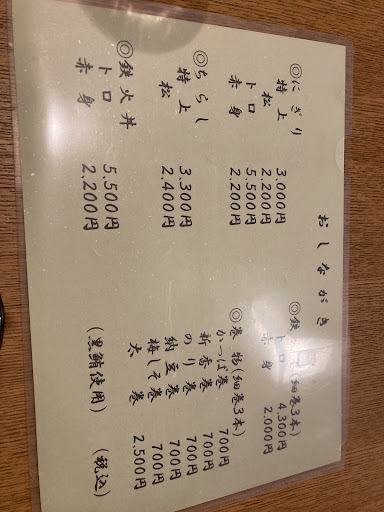 おしながき
◎にぎり
特上 3.000円
松 2.200円
トロ 5.500円
赤身 2.200円
◎ちらし
特上 3.300円
松 2.400円
◎鉄火丼
トロ 5.500円
赤身 2.200円
◎鉄 (細巻3本)
トロ 4.300円
赤身 2.000円
◎巻物(細巻3本)
かっぱ巻 700円
新香巻 700円
のり巻 700円
納豆巻 700円
梅しそ巻 700円
太巻 2.500円
(黒鮪使用) (税込)